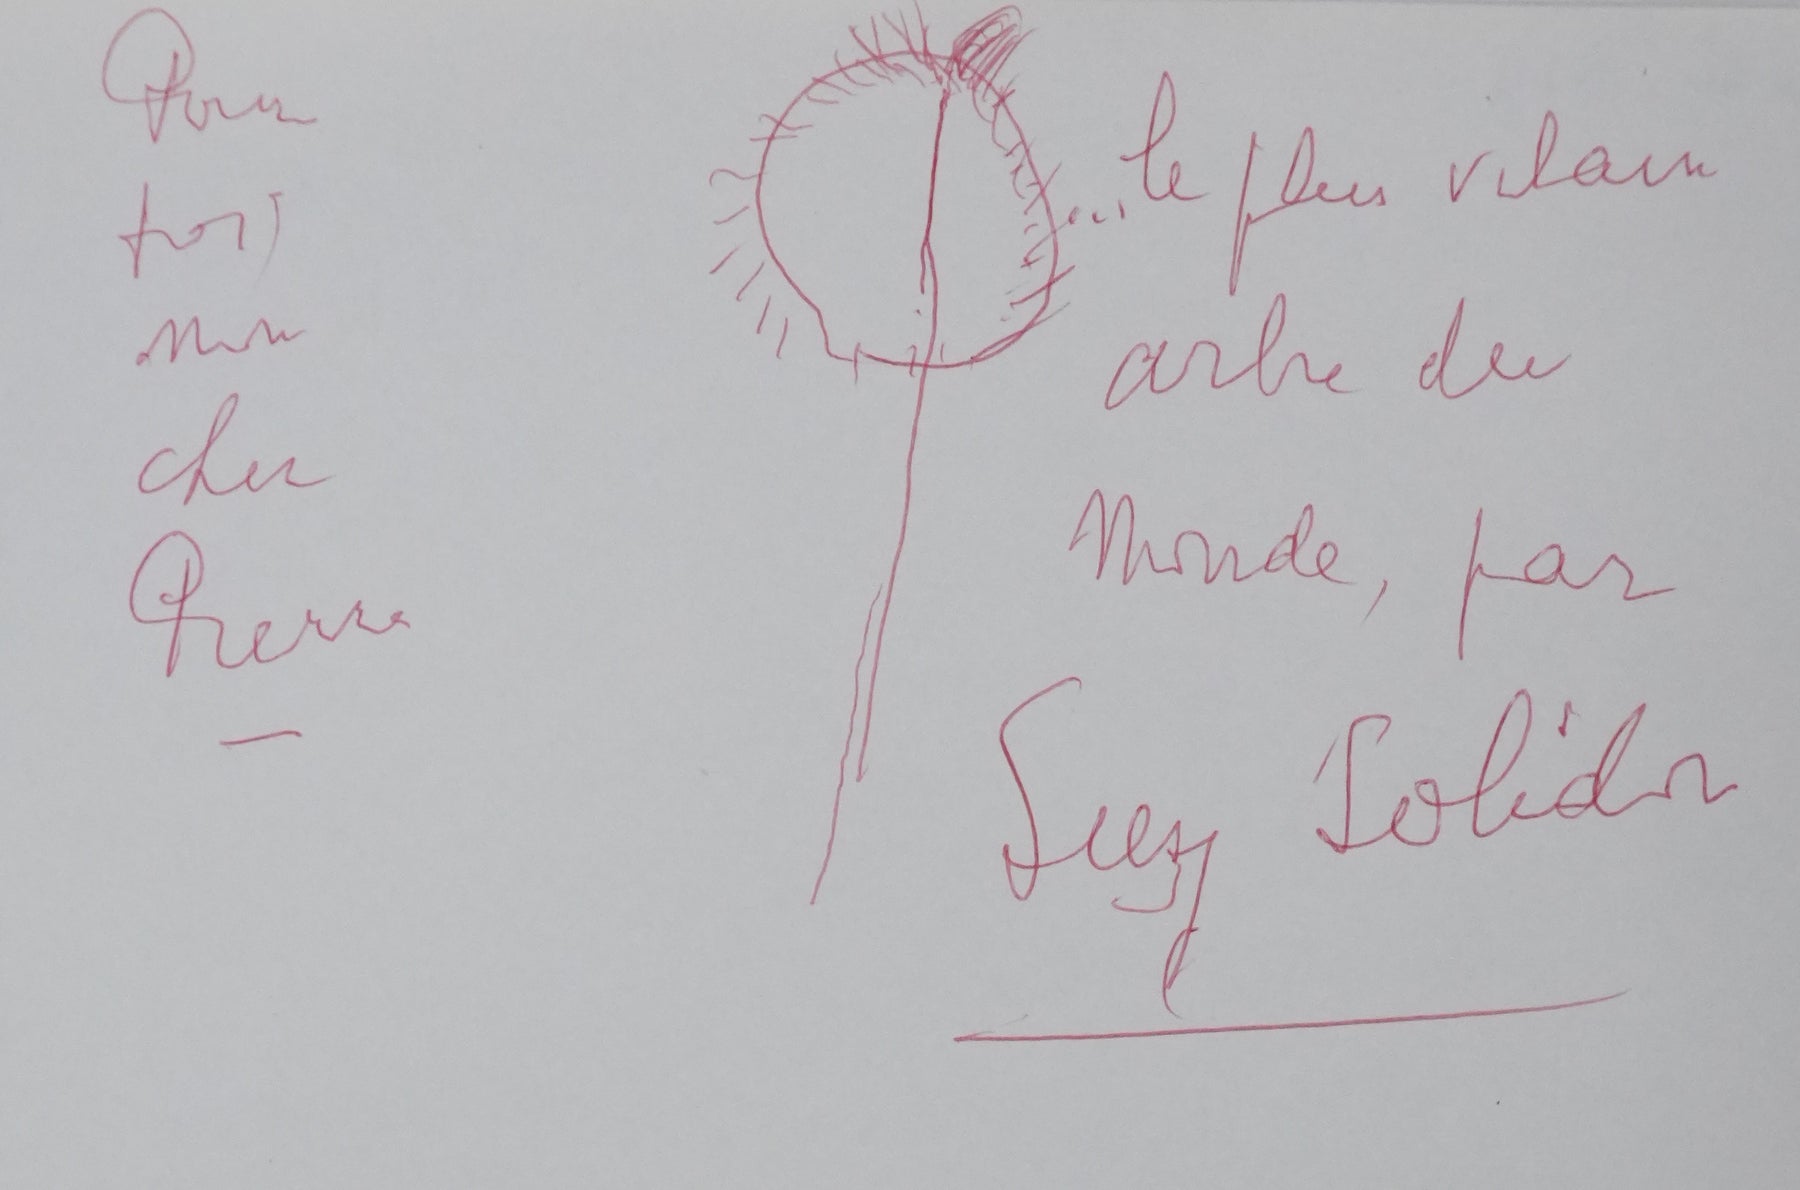 Pour
toi,
mon
cher
Pierre
—
...le plus vilain
arbre du
Monde, par
Suzy Solidor